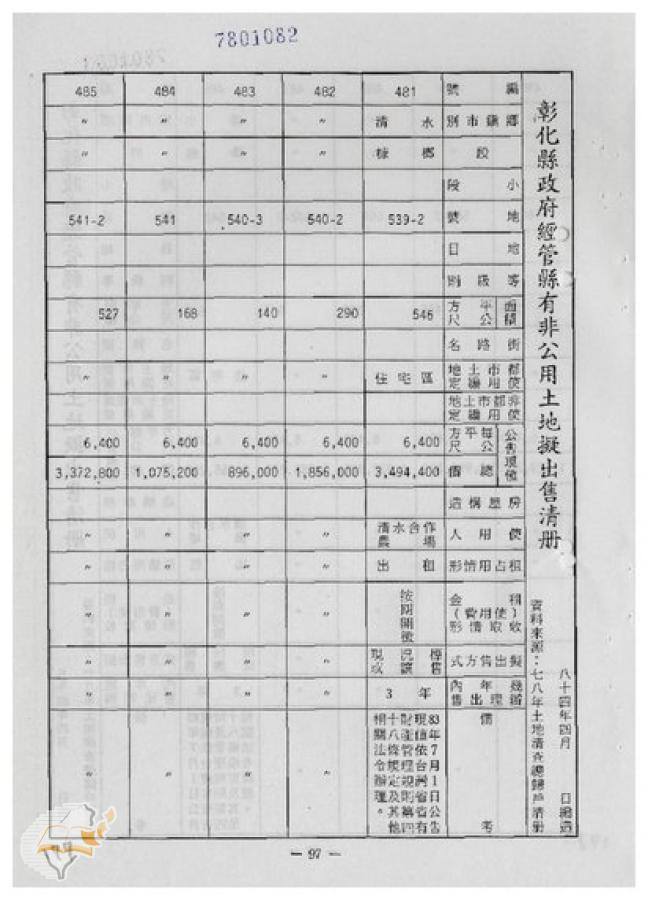 7801082
彰化縣政府經管縣有非公用土地擬出售清册
八十四年四月 日繕造
資料來源：七八年土地清查總歸戶清册
編號 481 482 483 484 485
鄉鎮市別 清水 〃 〃 〃 〃
段 槺榔 〃 〃 〃 〃
小段
地號 539-2 540-2 540-3 541 541-2
地目
等級則
面積 平方公尺 546 290 140 168 527
街路名
都市土地使用編定 住宅區 〃 〃 〃 〃
非都市土地使用編定
公告現值 每平方公尺 6,400 6,400 6,400 6,400 6,400
總價 3,494,400 1,856,000 896,000 1,075,200 3,372,800
房屋構造
使用人 清水合作農場 〃 〃 〃 〃
租占用情形 出租 〃 〃 〃 〃
租金（使用費）收取情形 按期開徵
擬出售方式 現況標售或讓售 〃 〃 〃 〃
幾年內辦理出售 3年 〃 〃 〃 〃
備考 83年7月1日公告現值依台灣省省有財產管理規則第四十八條規定及其他相關法令辦理。 〃 〃 〃 〃
— 97 —